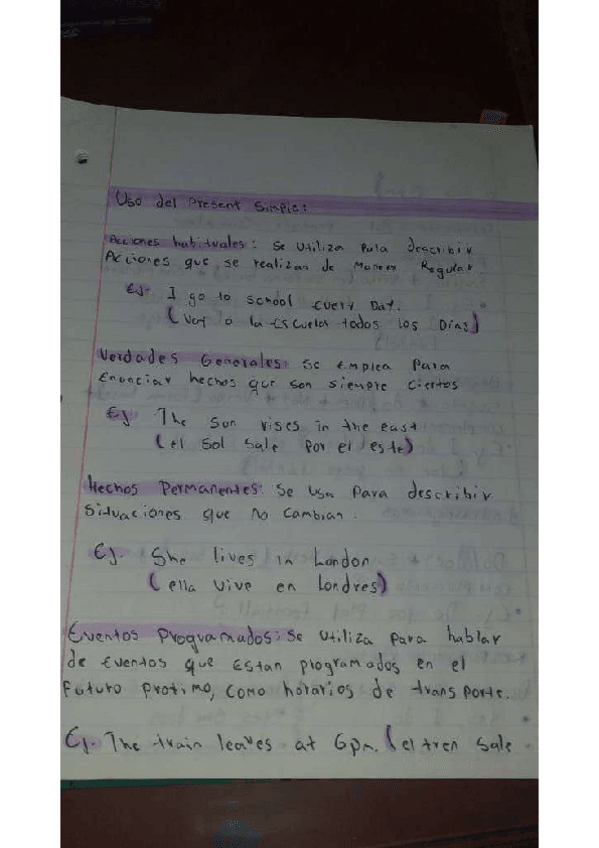 Uso del Present Simple:
Acciones habituales: Se utiliza para describir
Acciones que se realizan de Manera Regular
Ej. I go to school every Day.
(Voy a la Escuela todos los Días)
Verdades Generales: Se Emplea Para
Enunciar hechos que son siempre ciertos
Ej The Sun rises in the east
(el Sol Sale Por el este)
Hechos Permanentes: Se usa Para describir
Situaciones que No cambian.
Ej. She lives in London
(ella vive en Londres)
Eventos Programados: Se utiliza Para hablar
de Eventos que Estan programados en el
Futuro Proximo, como horarios de transporte.
Ej. The train leaves at 6pm. (el tren Sale